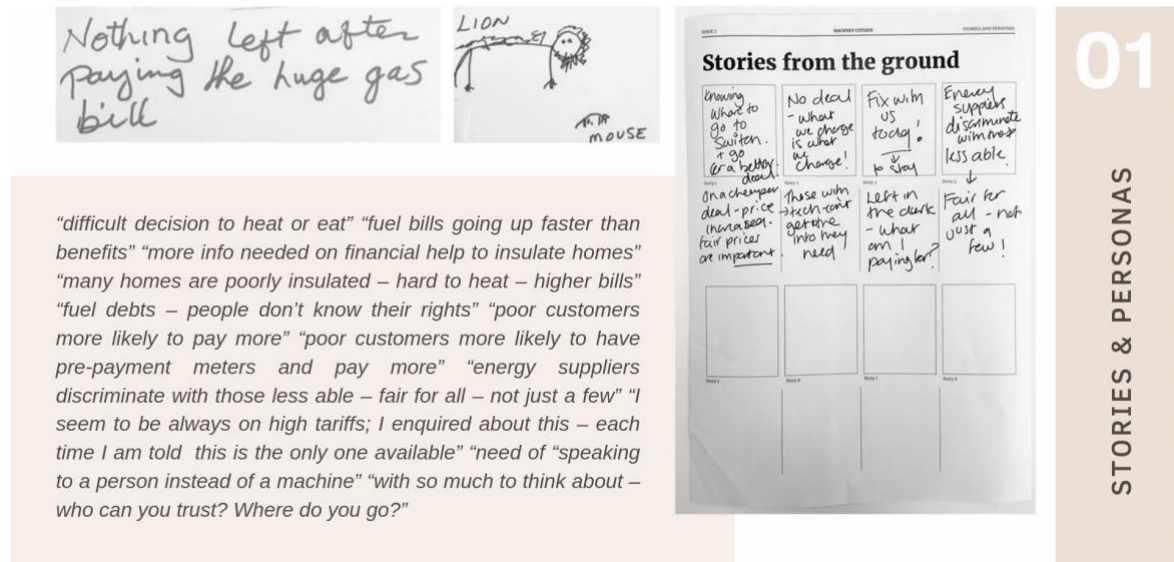 Nothing left after
paying the huge gas
bill
LION
MOUSE
“difficult decision to heat or eat” “fuel bills going up faster than
benefits” “more info needed on financial help to insulate homes”
“many homes are poorly insulated – hard to heat – higher bills”
“fuel debts – people don’t know their rights” “poor customers
more likely to pay more” “poor customers more likely to have
pre-payment meters and pay more” “energy suppliers
discriminate with those less able – fair for all – not just a few” “I
seem to be always on high tariffs; I enquired about this – each
time I am told this is the only one available” “need of “speaking
to a person instead of a machine” “with so much to think about –
who can you trust? Where do you go?”
HACKNEY CITIZEN
STORIES AND PERSONAS
Stories from the ground
Knowing
where to
go to
Switch.
+ go
for a better
deal.
No deal
- what
we charge
is what
we
charge!
Fix with
us
today!
↓
to stay
Energy
suppliers
discriminate
with those
less able
↓
Story 1
Story 2
Story 3
Story 4
On a cheaper
deal - price
increased.
fair prices
are important.
Those with
→ tech - can't
get the
info they
need
Left in
the dark
- what
am I
paying for?
Fair for
all - not
just a
few!
Story 5
Story 6
Story 7
Story 8
01
STORIES & PERSONAS